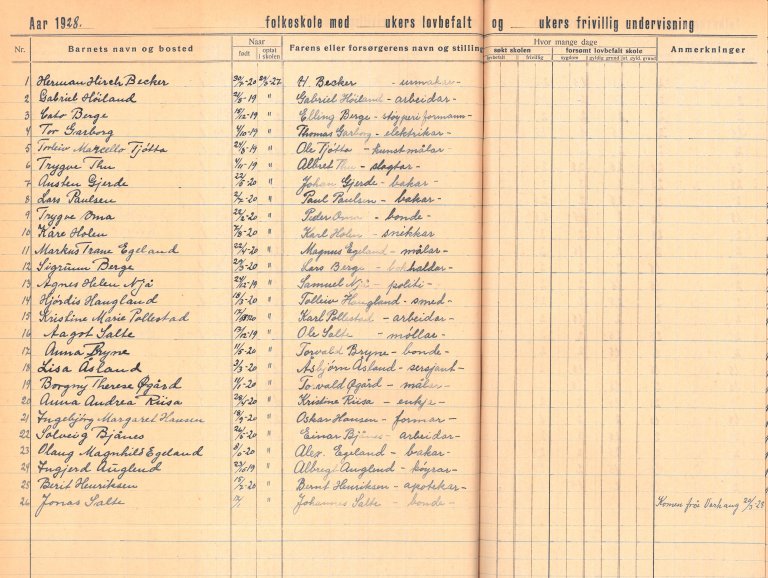 Aar 1928. folkeskole med ukers lovbefalt og ukers frivillig undervisning
Nr. Barnets navn og bosted Naar Farens eller forsørgerens navn og stilling Hvor mange dage Anmerkninger
født optat i skolen søkt skolen forsømt lovbefalt skole
lovbefalt frivillig sygdom gyldig grund int. gyld. grund
1 Herman Hirch Becker H. Becker - urmakar
2 Gabriel Höiland " Gabriel Höiland - arbeidar -
3 Cato Berge " Elling Berge - støyperiformann -
4 Tor Garborg 4/10-19 " Thomas Garborg - elektrikar -
5 Torleiv Marcello Tjötta " Ole Tjötta - kunstmålar -
6 Trygve Thu 4/11-19 " Albret Thu - slagtar -
7 Austen Gjerde " Johan Gjerde - bakar -
8 Lars Paulsen " Paul Paulsen - bakar -
9 Trygve Oma " Peder Oma - bonde -
10 Kåre Holen " Karl Holen - snikkar
11 Markus Trane Egeland 22/4-20 " Magnus Egeland - målar -
12 Sigrunn Berge " Lars Berge - haldar -
13 Agnes Helen Njå 24/12-19 " Samuel Njå - politi -
14 Hjördis Haugland " Tolleiv Haugland - smed -
15 Kristine Marie Pollestad " Karl Pollestad - arbeidar -
16 Aagot Salte 13/12-19 " Ole Salte - möllar -
17 Anna Bryne " Torvald Bryne - bonde -
18 Lisa Åsland " Åsbjörn Åsland - sersjant -
19 Borgny Therese Øgård " Torvald Øgård - målar -
20 Anna Andrea Riisa " Kristine Riisa - enkje -
21 Ingebjörg Margaret Hansen " Oskar Hansen - formar -
22 Solveig Bjånes " Einar Bjånes - arbeidar -
23 Olaug Magnhild Egeland " Alex. Egeland - bakar -
24 Ingjerd Auglend " Albregt Auglend - køyrar -
25 Berit Henriksen 15/2-20 " Bernt Henriksen - apotekar -
26 Jonas Salte " Johannes Salte - bonde - Komen frå Varhaug